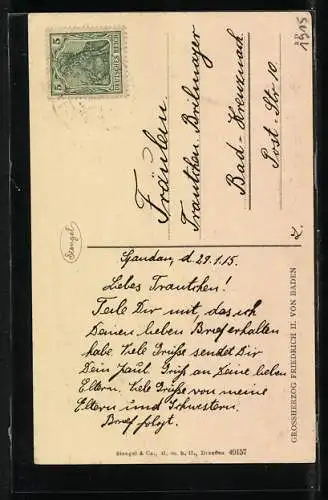 5 5
DEUTSCHES REICH
1915
Fräulein
Trautchen Brilmayer
Bad-Kreuznach
Post-Str 10.
Stengel
d. 29.1.15.
Liebes Trautchen!
Teile Dir mit, das ich
Deinen lieben Brief erhalten
habe. Viele Grüße sendet Dir
Dein Paul. Gruß an Deine lieben
Eltern. Viele Grüße von meine
Eltern und Schwestern.
Brief folgt.
GROSSHERZOG FRIEDRICH II. VON BADEN
Stengel & Co., G. m. b. H., Dresden 49157